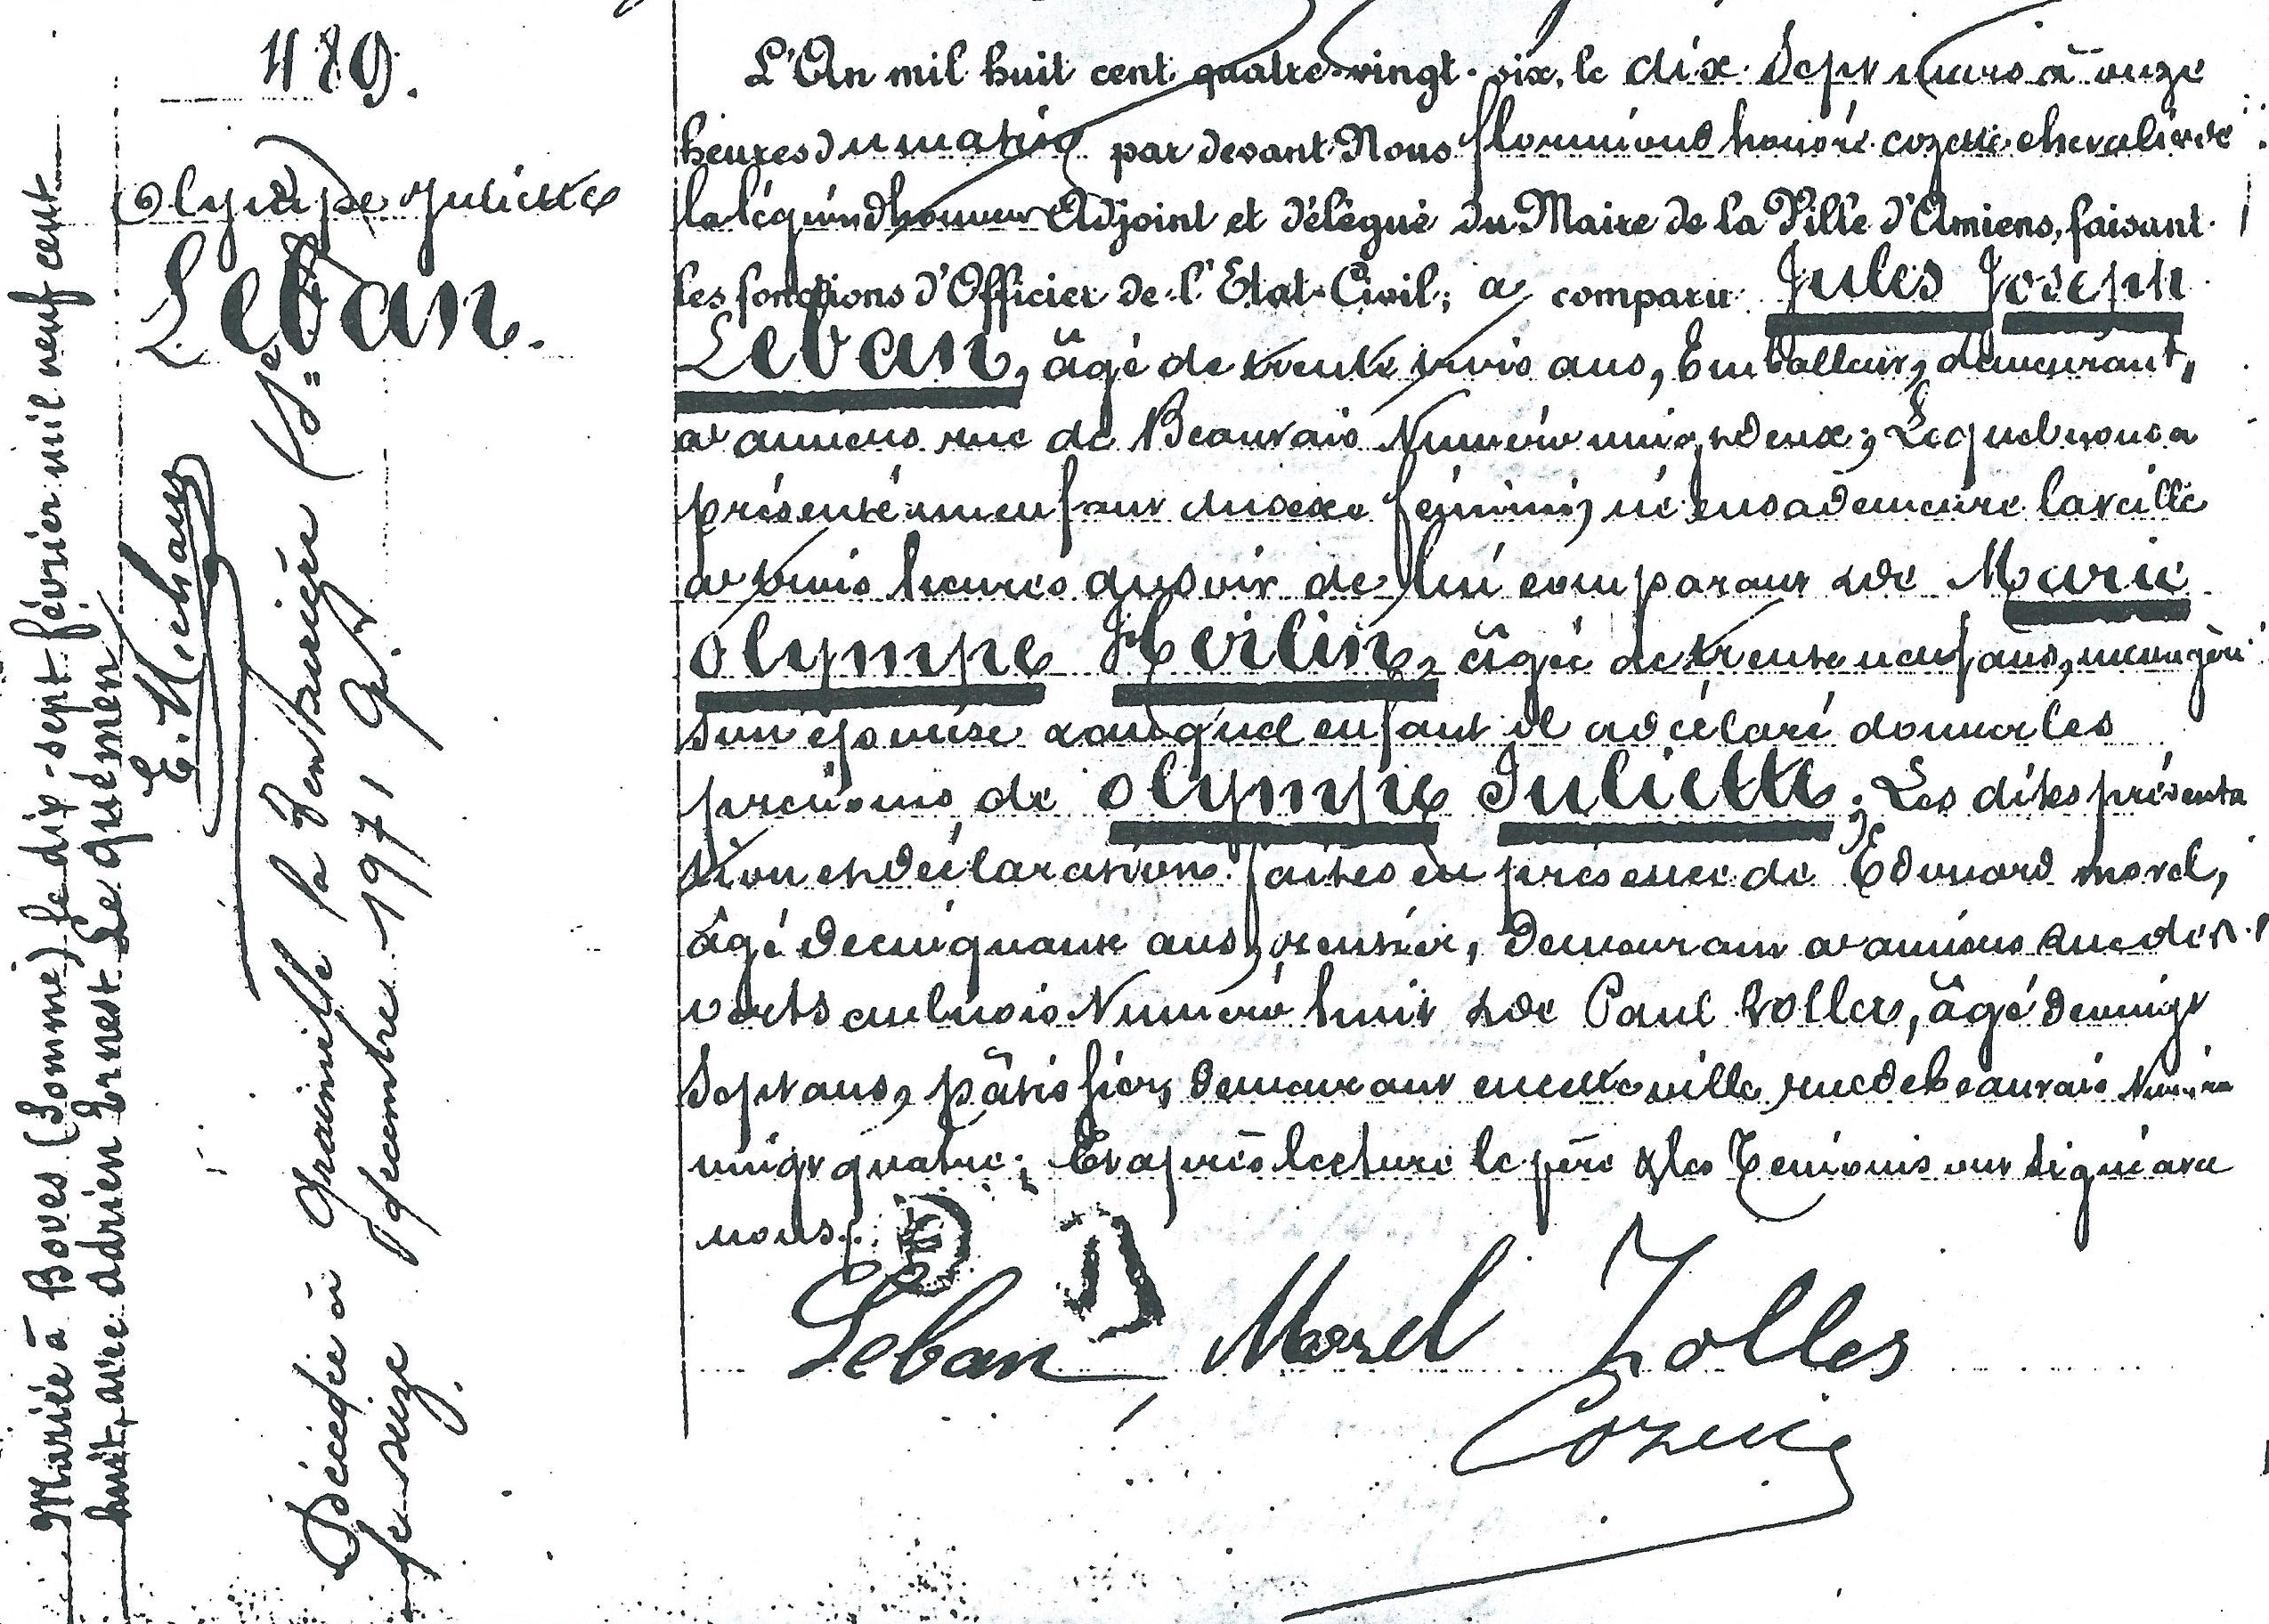 480.
Olympe Juliette
Leban.
Mariée à Boves (Somme) le dix-sept février mil neuf cent
huit, avec Adrien Ernest Le Quémen
E. Michaus
Décédée à Grainville la Teinturière (Sne Me)
le seize décembre 1971
L'An mil huit cent quatre-vingt-six, le dix Sept mars à onze
heures du matin par devant Nous florimond honoré cozette chevalier de
la légion d'honneur Adjoint et délégué du Maire de la Ville d'Amiens, faisant
les fonctions d'Officier de l'Etat-Civil; a comparu Jules Joseph
Leban, âgé de trente trois ans, Emballeur, demeurant,
à amiens rue de Beauvais Numéro vingt deux; Lequel nous a
présenté un enfant du sexe féminin, né en sa demeure la veille
à trois heures du soir de lui comparant & de Marie
olympe Hévilin, âgée de trente neuf ans, ménagère
son épouse & auquel enfant il a déclaré donner les
prénoms de olympe Juliette; Les dites présenta
tion et déclaration faites en présence de Edouard morel,
âgé de cinquante ans, rentier, demeurant à amiens rue des
verts aulnois Numéro huit & de Paul Zolles, âgé de vingt
Sept ans, pâtissier, demeurant en cette ville rue de beauvais Numéro
vingt quatre; Et après lecture le père & les Témoins ont signé avec
nous.
Leban Morel Zolles
Cozette